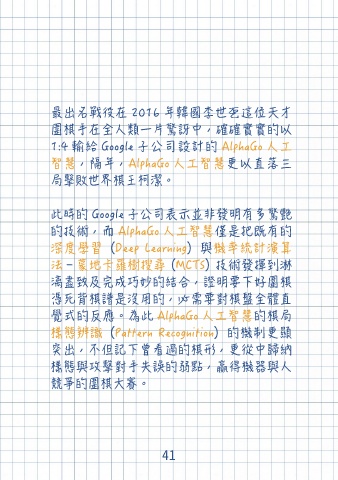 最出名戰役在 2016 年韓國李世乭這位天才
圍棋手在全人類一片驚訝中，確確實實的以
1:4 輸給 Google 子公司設計的 AlphaGo 人工
智慧，隔年，AlphaGo 人工智慧更以直落三
局擊敗世界棋王柯潔。
此時的 Google 子公司表示並非發明有多驚艷
的技術，而 AlphaGo 人工智慧僅是把既有的
深度學習（Deep Learning）與機率統計演算
法－蒙地卡羅樹搜尋（MCTS）技術發揮到淋
漓盡致及完成巧妙的結合，證明要下好圍棋
憑死背棋譜是沒用的，必需要對棋盤全體直
覺式的反應。為此 AlphaGo 人工智慧的棋局
樣態辨識（Pattern Recognition）的機制更顯
突出，不但記下曾看過的棋形，更從中歸納
樣態與攻擊對手失誤的弱點，贏得機器與人
競爭的圍棋大賽。
41